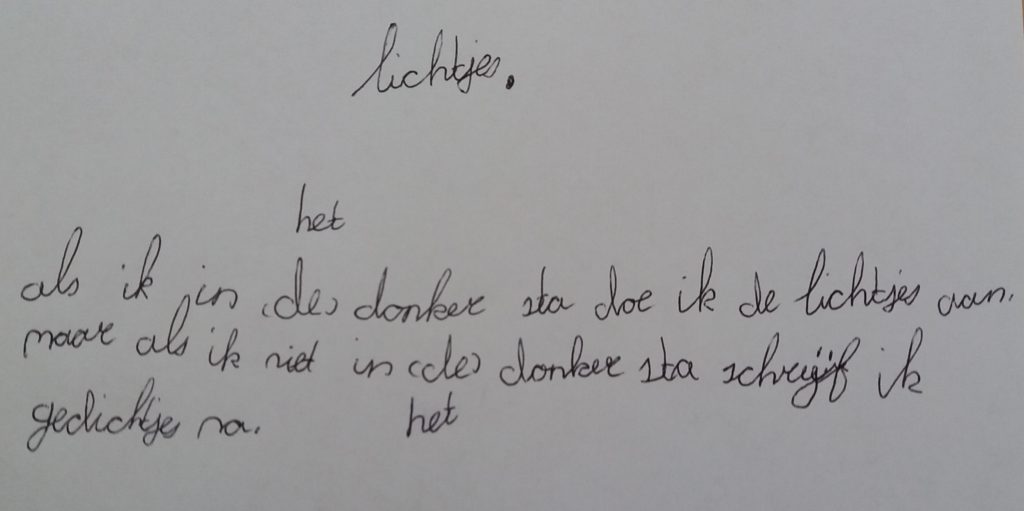 lichtjes.
het
als ik in (de) donker sta doe ik de lichtjes aan.
maar als ik niet in (de) donker sta schrijf ik
gedichtjes na.
het